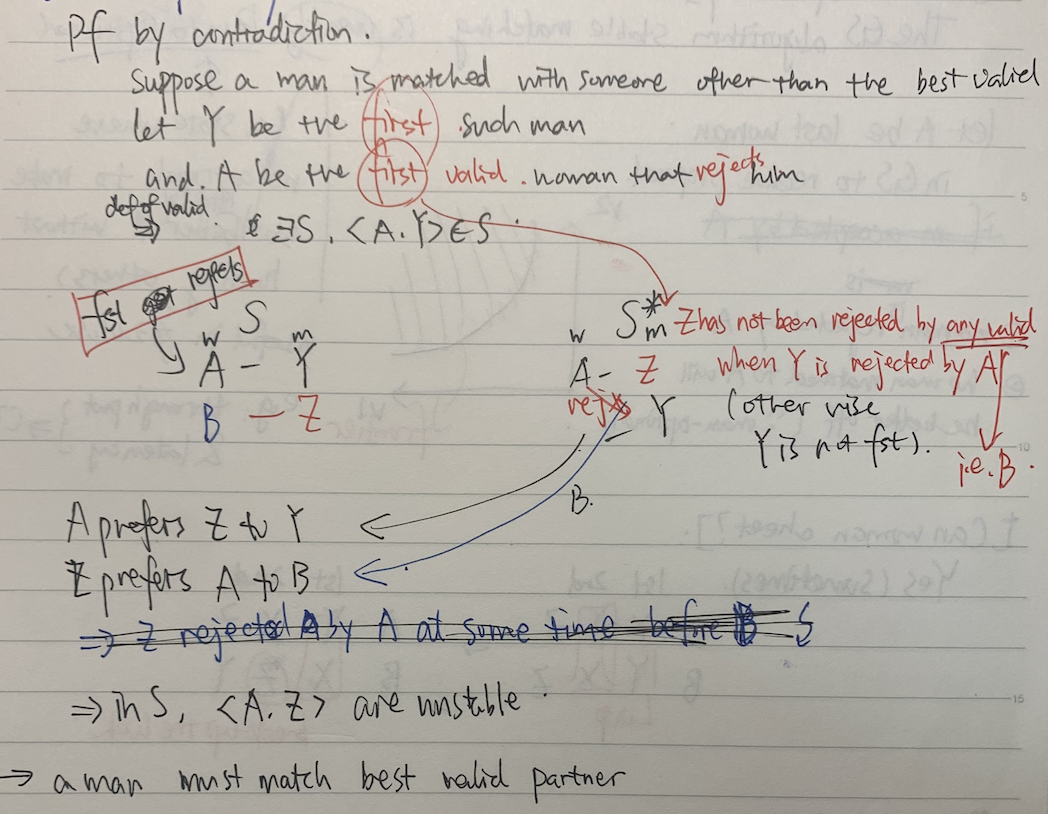 Pf by contradiction.
Suppose a man is matched with someone other than the best valid
let Y be the first such man
and. A be the first valid. woman that rejects him
def of valid
⇒ ∃S, <A.Y> ∈ S.
fst rejects
S
w m
A - Y
B - Z
S*
w m
A - Z
rejx Y
B.
Z has not been rejected by any valid
when Y is rejected by A
(other wise
Y is not fst).
i.e. B.
A prefers Z to Y
Z prefers A to B
⇒ Z rejected A by A at some time before B S
⇒ in S, <A.Z> are unstable.
→ a man must match best valid partner